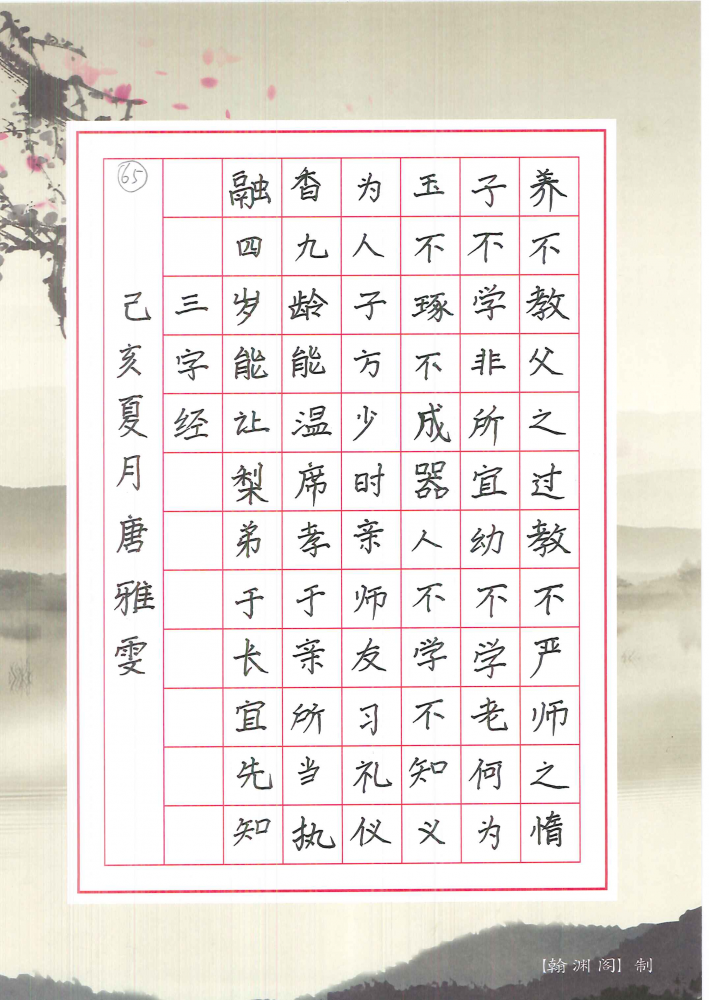 养不教父之过教不严师之惰
子不学非所宜幼不学老何为
玉不琢不成器人不学不知义
为人子方少时亲师友习礼仪
香九龄能温席孝于亲所当执
融四岁能让梨弟于长宜先知
三字经
己亥夏月唐雅雯
65
【翰渊阁】制